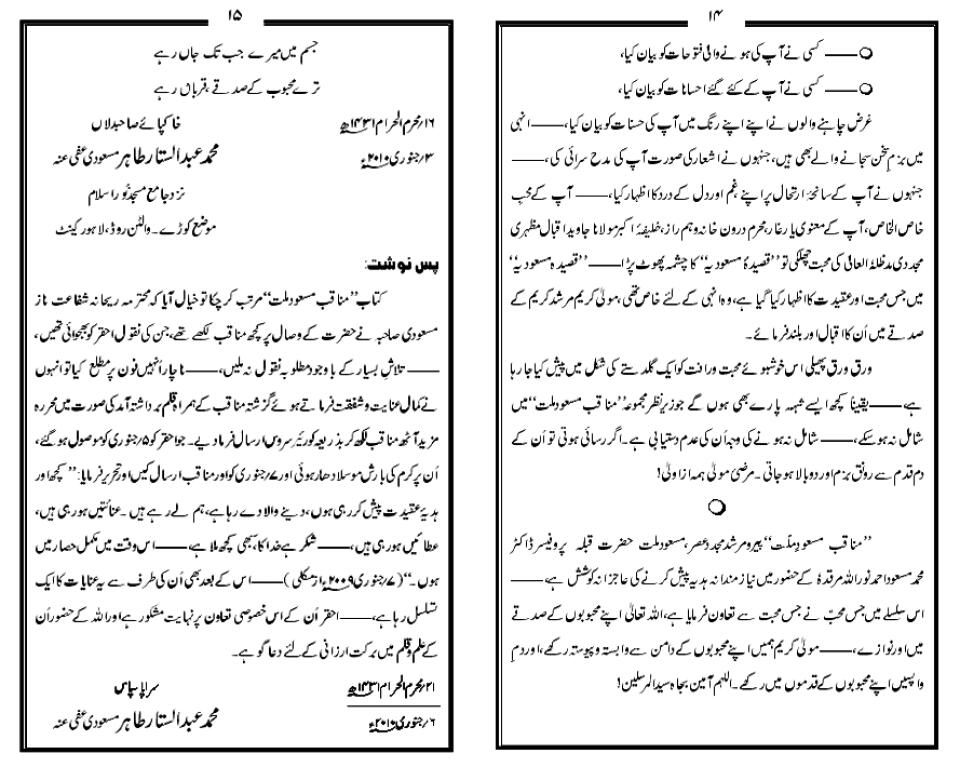 ۱۴
○ —— کسی نے آپ کی ہونے والی فتوحات کو بیان کیا،
○ —— کسی نے آپ کے کئے گئے احسانات کو بیان کیا،
غرض چاہنے والوں نے اپنے اپنے رنگ میں آپ کی حسنات کو بیان کیا، —— انہی
میں بزمِ سخن سجانے والے بھی ہیں، جنہوں نے اشعار کی صورت آپ کی مدح سرائی کی، ——
جنہوں نے آپ کے سانحۂ ارتحال پر اپنے غم اور دل کے درد کا اظہار کیا، —— آپ کے محبِ
خاص الخاص، آپ کے معنوی یارِ غار، محرم درون خانہ و ہم راز، خلیفۂ اکبر مولانا جاوید اقبال مظہری
مجددی مدظلہٗ العالی کی محبت چھلکی تو ’’قصیدۂ مسعودیہ‘‘ کا چشمہ پھوٹ پڑا —— ’’قصیدہ مسعودیہ‘‘
میں جس محبت اور عقیدت کا اظہار کیا گیا ہے، وہ انہی کے لئے خاص تھی، مولیٰ کریم مرشد کریم کے
صدقے میں اُن کا اقبال اور بلند فرمائے۔
ورق ورق پھیلی اس خوشبوئے محبت و رافت کو ایک گلدستے کی شکل میں پیش کیا جا رہا
ہے —— یقیناً کچھ ایسے شہہ پارے بھی ہوں گے جو زیرِ نظر مجموعہ ’’مناقب مسعود ملت‘‘ میں
شامل نہ ہو سکے، —— شامل نہ ہونے کی وجہ اُن کی عدم دستیابی ہے۔ اگر رسائی ہوتی تو اُن کے
دم قدم سے رونق بزم اور دوبالا ہو جاتی۔ مرضیٔ مولیٰ ہمہ از اولیٰ!
○
’’مناقب مسعود ملّت‘‘ پیر و مرشد مجددِ عصر، مسعود ملت حضرت قبلہ پروفیسر ڈاکٹر
محمد مسعود احمد نور اللہ مرقدہٗ کے حضور میں نیاز مندانہ ہدیہ پیش کرنے کی عاجزانہ کوشش ہے ——
اس سلسلے میں جس محبّ نے جس محبت سے تعاون فرمایا ہے، اللہ تعالیٰ اپنے محبوبوں کے صدقے
میں اور نوازے، —— مولیٰ کریم ہمیں اپنے محبوبوں کے دامن سے وابستہ و پیوستہ رکھے، اور دمِ
واپسیں اپنے محبوبوں کے قدموں میں رکھے۔ اللھم آمین بجاہ سید المرسلین!
۱۵
جسم میں میرے جب تک جاں رہے
ترے محبوب کے صدقے، قرباں رہے
۱۶/محرم الحرام ۱۴۳۱ھ خاکپائے صاحبدلاں
۳/جنوری ۲۰۱۰ء محمد عبدالستار طاہر مسعودی عفی عنہ
نزد جامع مسجد نُورِ اسلام
موضع کوڑے۔ والٹن روڈ، لاہور کینٹ
پس نوشت:
کتاب ’’مناقب مسعود ملت‘‘ مرتب کر چکا تو خیال آیا کہ محترمہ ریحانہ شفاعت ناز
مسعودی صاحبہ نے حضرت کے وصال پر کچھ مناقب لکھے تھے، جن کی نقول احقر کو بھجوائی تھیں،
—— تلاش بسیار کے باوجود مطلوبہ نقول نہ ملیں، —— ناچار اُنہیں فون پر مطلع کیا تو انہوں
نے کمال عنایت و شفقت فرماتے ہوئے گزشتہ مناقب کے ہمراہ قلم برداشتہ آمد کی صورت میں محررہ
مزید آٹھ مناقب لکھ کر بذریعہ کورئیر سروس ارسال فرما دیے۔ جو احقر کو ۵/جنوری کو موصول ہو گئے،
اُن پر کرم کی بارش موسلا دھار ہوئی اور ۷/جنوری کو اور مناقب ارسال کیں اور تحریر فرمایا: ’’کچھ اور
ہدیۂ عقیدت پیش کر رہی ہوں، دینے والا دے رہا ہے، ہم لے رہے ہیں۔ عنائتیں ہو رہی ہیں،
عطائیں ہو رہی ہیں، —— شکر ہے خدا کا، سبھی کچھ ملا ہے، —— اس وقت میں مکمل حصار میں
ہوں۔‘‘ (۷/جنوری ۲۰۰۹ء از مکلی) —— اس کے بعد بھی اُن کی طرف سے یہ عنایات کا ایک
تسلسل رہا ہے، —— احقر اُن کے اس خصوصی تعاون پر نہایت مشکور ہے اور اللہ کے حضور اُن
کے علم و قلم میں برکت ارزانی کے لئے دعا گو ہے۔
۲۱/محرم الحرام ۱۴۳۱ھ سراپا سپاس
۶/جنوری ۲۰۱۰ء محمد عبدالستار طاہر مسعودی عفی عنہ